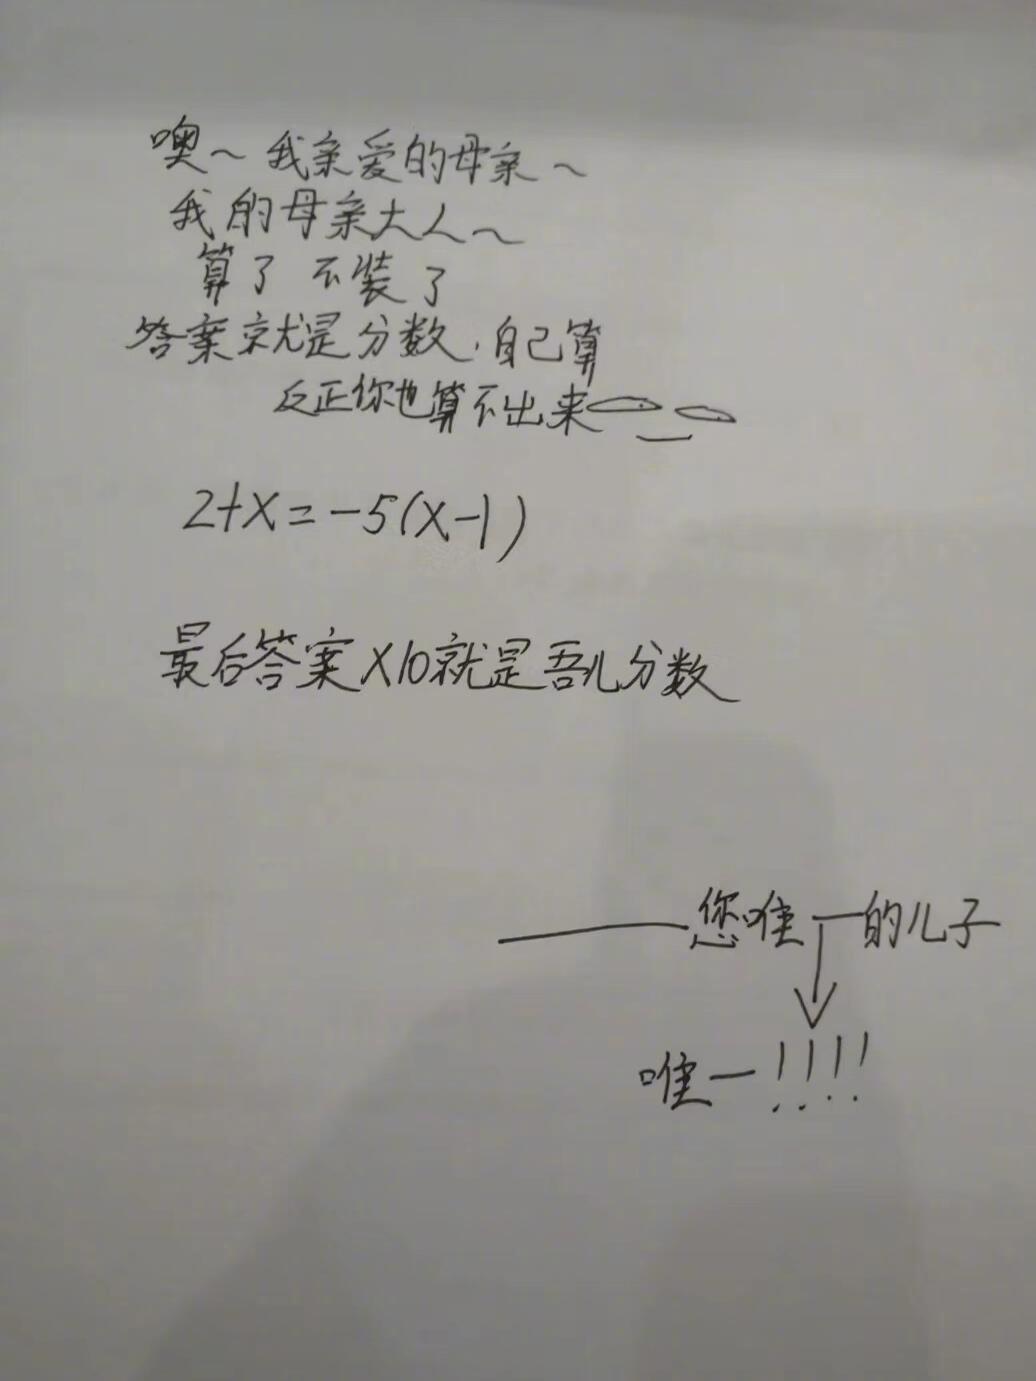 噢~我亲爱的母亲~
我的母亲大人~
算了 不装了
答案就是分数,自己算
反正你也算不出来
2+x=-5(x-1)
最后答案×10就是吾儿分数
——您唯一的儿子
唯一!!!!